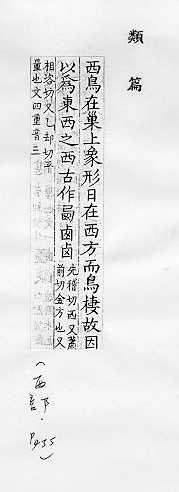 類篇
西鳥在巢上象形日在西方而鳥棲故因
以爲東西之西古作鹵鹵
先稽切西又蕭
前切金方也又
相咨切又乙却切
量也文四重音三
(西部.
P.455)